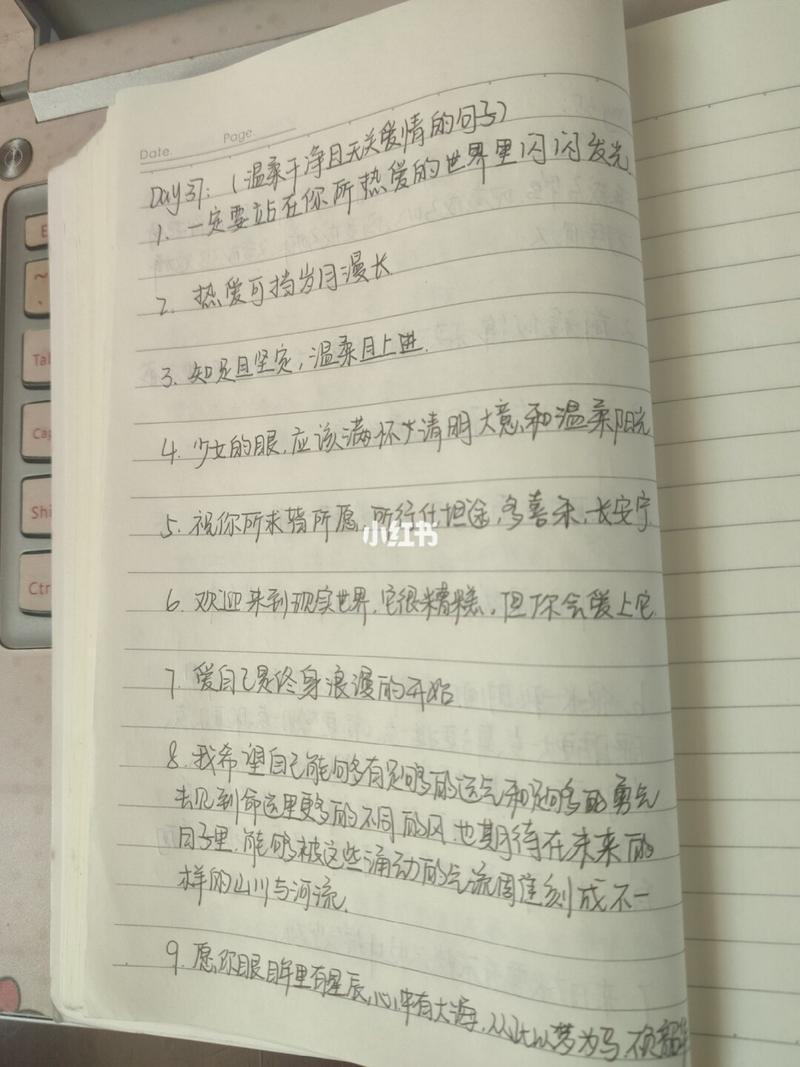 Date.
Page.
Day37:（温柔干净且无关爱情的句子）
1. 一定要站在你所热爱的世界里闪闪发光
2. 热爱可挡岁月漫长
3. 知足且坚定，温柔且上进.
4. 少女的眼，应该满怀清明大意和温柔阳光
5. 祝你所求皆所愿，所行化坦途，多喜乐，长安宁
小红书
6. 欢迎来到现实世界，它很糟糕，但你会爱上它
7. 爱自己是终身浪漫的开始.
8. 我希望自己能够有足够的运气和足够的勇气
去见到命运里更多的不同的风.也期待在未来的
日子里，能够被这些涌动的气流周旋刻成不一
样的山川与河流.
9. 愿你眼眸里有星辰，心中有大海，从此以梦为马，不负韶华
E
~
Tab
Cap
Shi
Ctr